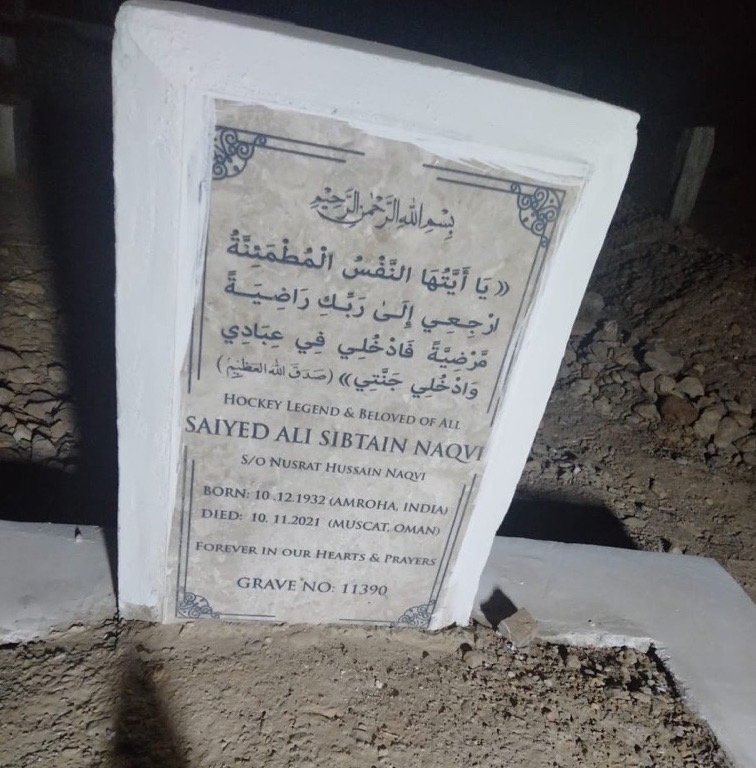 بِسْمِ اللهِ الرَّحْمٰنِ الرَّحِيْمِ
« يَا أَيَّتُهَا النَّفْسُ الْمُطْمَئِنَّةُ
ارْجِعِي إِلَىٰ رَبِّكِ رَاضِيَةً
مَّرْضِيَّةً فَادْخُلِي فِي عِبَادِي
وَادْخُلِي جَنَّتِي» (صَدَقَ اللهُ العَظِيْمُ)
HOCKEY LEGEND & BELOVED OF ALL
SAIYED ALI SIBTAIN NAQVI
S/O NUSRAT HUSSAIN NAQVI
BORN: 10 .12.1932 (AMROHA, INDIA)
DIED: 10. 11.2021 (MUSCAT, OMAN)
FOREVER IN OUR HEARTS & PRAYERS
GRAVE NO: 11390